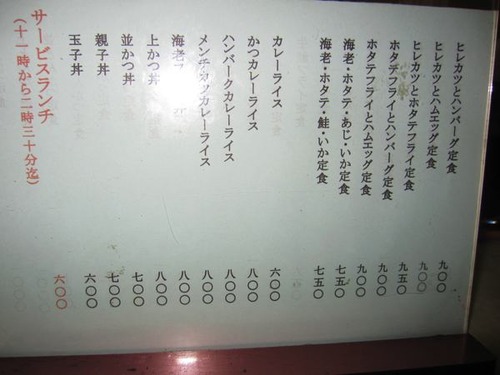 ヒレカツとハンバーグ定食 九〇〇
ヒレカツとハムエッグ定食 九〇〇
ヒレカツとホタテフライ定食 九五〇
ホタテフライとハンバーグ定食 九〇〇
ホタテフライとハムエッグ定食 九〇〇
海老・ホタテ・あじ・いか定食 七五〇
海老・ホタテ・鮭・いか定食 七五〇
カレーライス 六〇〇
かつカレーライス 八〇〇
ハンバークカレーライス 八〇〇
メンチカツカレーライス 八〇〇
海老 丼 八〇〇
上かつ丼 八〇〇
並かつ丼 七〇〇
親子丼 七〇〇
玉子丼 六〇〇
サービスランチ 六〇〇
(十一時から二時三十分迄)